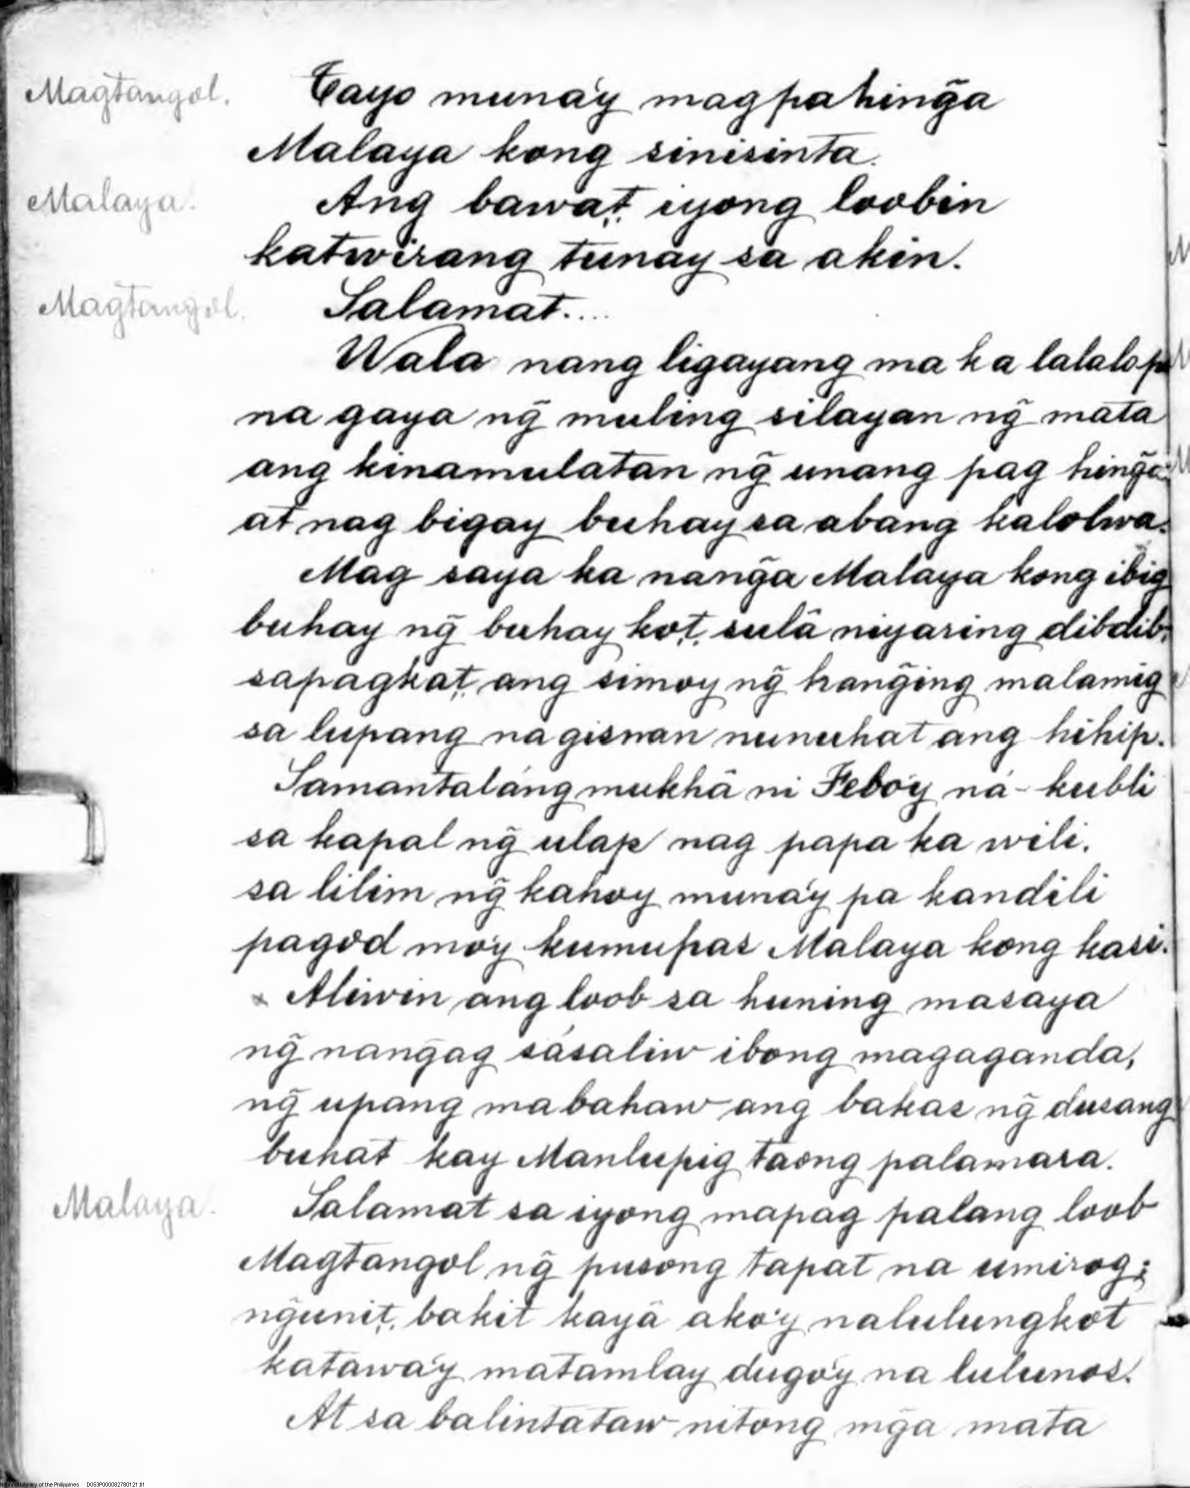 Magtangol. Tayo muna'y magpahing̃a
Malaya kong sinisinta.
Malaya. Ang bawa't iyong loobin
katwirang tunay sa akin.
Magtangol. Salamat....
Wala nang ligayang ma ka lalalo pa
na gaya ng̃ muling silayan ng̃ mata
ang kinamulatan ng̃ unang pag hing̃a
at nag bigay buhay sa abang kalolwa.
Mag saya ka nang̃a Malaya kong ibig
buhay ng̃ buhay ko't, sulâ niyaring dibdib,
sapagka't ang simoy ng̃ hang̃ing malamig
sa lupang na gisnan nunuhat ang hihip.
Samantaláng mukhâ ni Febo'y ná-kubli
sa kapal ng̃ ulap nag papa ka wili.
sa lilim ng̃ kahoy muna'y pa kandili
pagod mo'y kumupas Malaya kong kasi.
x Aliwin ang loob sa huning masaya
ng̃ nang̃ag sásaliw ibong magaganda,
ng̃ upang ma bahaw ang bakas ng̃ dusang
buhat kay Manlupig taong palamara.
Malaya. Salamat sa iyong mapag palang loob
Magtangol ng̃ pusong tapat na umirog;
ng̃uni't, bakit kayâ ako'y nalulungkot
katawa'y matamlay dugo'y na lulunos.
At sa balintataw nitong mg̃a mata